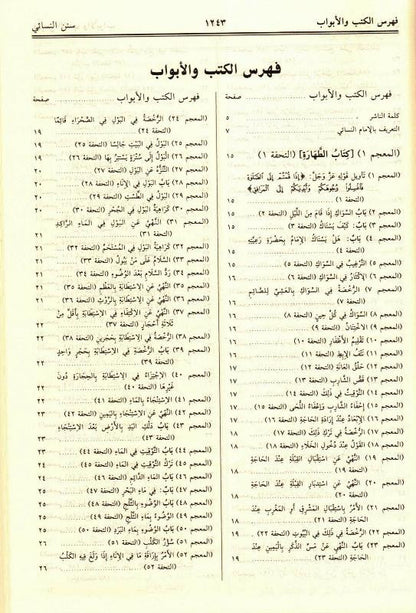 فهرس الكتب والأبواب
١٢٤٣
سنن النسائي
فهرس الكتب والأبواب
فهرس الكتب والأبواب صفحة
كلمة الناشر ٥
التعريف بالإمام النسائي ٧
(المعجم ١) [كِتَابُ الطَّهَارَةِ] (التحفة ١) ١٥
(المعجم ١) تَأْوِيلُ قَوْلِهِ عَزَّ وَجَلَّ: ﴿إِذَا قُمْتُمْ إِلَى الصَّلَاةِ
فَاغْسِلُوا وُجُوهَكُمْ وَأَيْدِيَكُمْ إِلَى الْمَرَافِقِ﴾
(التحفة ١) ١٥
(المعجم ٢) بَابُ السِّوَاكِ إِذَا قَامَ مِنَ اللَّيْلِ (التحفة ٢) ١٥
(المعجم ٣) بَابٌ: كَيْفَ يَسْتَاكُ (التحفة ٣) ١٥
(المعجم ٤) بَابٌ: هَلْ يَسْتَاكُ الإِمَامُ بِحَضْرَةِ رَعِيَّتِهِ
(التحفة ٤) ١٥
(المعجم ٥) التَّرْغِيبُ فِي السِّوَاكِ (التحفة ٥) ١٥
(المعجم ٦) الإِكْثَارُ فِي السِّوَاكِ (التحفة ٦) ١٦
(المعجم ٧) الرُّخْصَةُ فِي السِّوَاكِ بِالْعَشِيِّ لِلصَّائِمِ
(التحفة ٧) ١٦
(المعجم ٨) السِّوَاكُ فِي كُلِّ حِينٍ (التحفة ٨) ١٦
(المعجم ٩) الاخْتِتَانُ (التحفة ٩) ١٦
(المعجم ١٠) تَقْلِيمُ الأَظْفَارِ (التحفة ١٠) ١٦
(المعجم ١١) نَتْفُ الإِبِطِ (التحفة ١١) ١٦
(المعجم ١٢) حَلْقُ الْعَانَةِ (التحفة ١٢) ١٧
(المعجم ١٣) قَصُّ الشَّارِبِ (التحفة ١٣) ١٧
(المعجم ١٤) التَّوْقِيتُ فِي ذَلِكَ (التحفة ١٤) ١٧
(المعجم ١٥) إِحْفَاءُ الشَّارِبِ وَإِعْفَاءُ اللِّحَى (التحفة ١٥) ١٧
(المعجم ١٦) الإِبْعَادُ عِنْدَ إِرَادَةِ الْحَاجَةِ (التحفة ١٦) ١٧
(المعجم ١٧) الرُّخْصَةُ فِي تَرْكِ ذَلِكَ (التحفة ١٧) ١٨
(المعجم ١٨) الْقَوْلُ عِنْدَ دُخُولِ الْخَلَاءِ (التحفة ١٨) ١٨
(المعجم ١٩) النَّهْيُ عَنِ اسْتِقْبَالِ الْقِبْلَةِ عِنْدَ الْحَاجَةِ
(التحفة ١٩) ١٨
(المعجم ٢٠) النَّهْيُ عَنِ اسْتِدْبَارِ الْقِبْلَةِ عِنْدَ الْحَاجَةِ
(التحفة ٢٠) ١٨
(المعجم ٢١) الأَمْرُ بِاسْتِقْبَالِ الْمَشْرِقِ أَوِ الْمَغْرِبِ عِنْدَ
الْحَاجَةِ (التحفة ٢١) ١٨
(المعجم ٢٢) الرُّخْصَةُ فِي ذَلِكَ فِي الْبُيُوتِ (التحفة ٢٢) ١٩
(المعجم ٢٣) بَابُ النَّهْيِ عَنْ مَسِّ الذَّكَرِ بِالْيَمِينِ عِنْدَ
الْحَاجَةِ (التحفة ٢٣) ١٩
فهرس الكتب والأبواب صفحة
(المعجم ٢٤) الرُّخْصَةُ فِي الْبَوْلِ فِي الصَّحْرَاءِ قَائِمًا
(التحفة ٢٤) ١٩
(المعجم ٢٥) الْبَوْلُ فِي الْبَيْتِ جَالِسًا (التحفة ٢٥) ١٩
(المعجم ٢٦) الْبَوْلُ إِلَى سُتْرَةٍ يَسْتَتِرُ بِهَا (التحفة ٢٦) ١٩
(المعجم ٢٧) التَّنَزُّهُ عَنِ الْبَوْلِ (التحفة ٢٧) ٢٠
(المعجم ٢٨) بَابُ الْبَوْلِ فِي الإِنَاءِ (التحفة ٢٨) ٢٠
(المعجم ٢٩) الْبَوْلُ فِي الطَّسْتِ (التحفة ٢٩) ٢٠
(المعجم ٣٠) كَرَاهِيَةُ الْبَوْلِ فِي الْجُحْرِ (التحفة ٣٠) ٢٠
(المعجم ٣١) النَّهْيُ عَنِ الْبَوْلِ فِي الْمَاءِ الرَّاكِدِ
(التحفة ٣١) ٢١
(المعجم ٣٢) كَرَاهِيَةُ الْبَوْلِ فِي الْمُسْتَحَمِّ (التحفة ٣٢) ٢١
(المعجم ٣٣) السَّلَامُ عَلَى مَنْ يَبُولُ (التحفة ٣٣) ٢١
(المعجم ٣٤) رَدُّ السَّلَامِ بَعْدَ الْوُضُوءِ (التحفة ٣٤) ٢١
(المعجم ٣٥) النَّهْيُ عَنِ الاسْتِطَابَةِ بِالْعَظْمِ (التحفة ٣٥) ٢١
(المعجم ٣٦) النَّهْيُ عَنِ الاسْتِطَابَةِ بِالرَّوْثِ (التحفة ٣٦) ٢١
(المعجم ٣٧) النَّهْيُ عَنِ الاكْتِفَاءِ فِي الاسْتِطَابَةِ بِأَقَلَّ مِنْ
ثَلَاثَةِ أَحْجَارٍ (التحفة ٣٧) ٢٢
(المعجم ٣٨) الرُّخْصَةُ فِي الاسْتِطَابَةِ بِحَجَرَيْنِ (التحفة ٣٨) ٢٢
(المعجم ٣٩) بَابُ الرُّخْصَةِ فِي الاسْتِطَابَةِ بِحَجَرٍ وَاحِدٍ
(التحفة ٣٩) ٢٢
(المعجم ٤٠) الاجْتِزَاءُ فِي الاسْتِطَابَةِ بِالْحِجَارَةِ دُونَ
غَيْرِهَا (التحفة ٤٠) ٢٢
(المعجم ٤١) الاسْتِنْجَاءُ بِالْمَاءِ (التحفة ٤١) ٢٢
(المعجم ٤٢) النَّهْيُ عَنِ الاسْتِنْجَاءِ بِالْيَمِينِ (التحفة ٤٢) ٢٣
(المعجم ٤٣) بَابُ دَلْكِ الْيَدِ بِالأَرْضِ بَعْدَ الاسْتِنْجَاءِ
(التحفة ٤٣) ٢٣
(المعجم ٤٤) بَابُ التَّوْقِيتِ فِي الْمَاءِ (التحفة ٤٤) ٢٣
(المعجم ٤٥) تَرْكُ التَّوْقِيتِ فِي الْمَاءِ (التحفة ٤٥) ٢٤
(المعجم ٤٦) بَابُ الْمَاءِ الدَّائِمِ (التحفة ٤٦) ٢٤
(المعجم ٤٧) بَابٌ: فِي مَاءِ الْبَحْرِ (التحفة ٤٧) ٢٥
(المعجم ٤٨) بَابُ الْوُضُوءِ بِالثَّلْجِ (التحفة ٤٨) ٢٥
(المعجم ٤٩) الْوُضُوءُ بِمَاءِ الثَّلْجِ (التحفة ٤٩) ٢٥
(المعجم ٥٠) بَابُ الْوُضُوءِ بِمَاءِ الْبَرَدِ (التحفة ٥٠) ٢٥
(المعجم ٥١) سُؤْرُ الْكَلْبِ (التحفة ٥١) ٢٥
(المعجم ٥٢) الأَمْرُ بِإِرَاقَةِ مَا فِي الإِنَاءِ إِذَا وَلَغَ فِيهِ الْكَلْبُ
(التحفة ٥٢) ٢٦